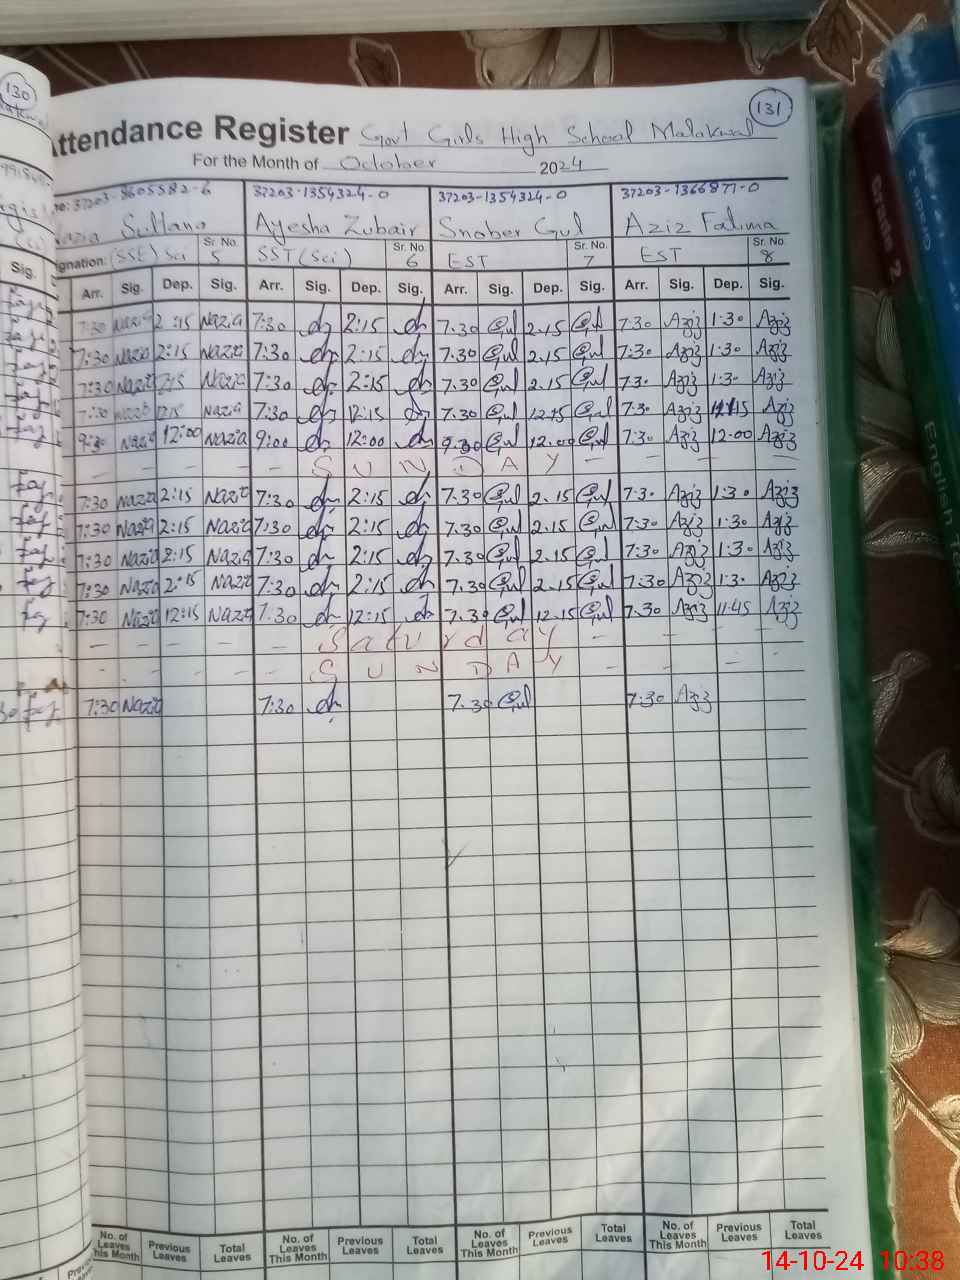 130
131
Attendance Register Govt Girls High School Malakwal
For the Month of October 2024
37203-8605582-6 37203-1354324-0 37203-1354324-0 37203-1366871-0
Nazia Sultana Ayesha Zubair Snober Gul Aziz Fatima
Sr. No. Sr. No. Sr. No. Sr. No.
ignation: (SSE) Sci 5 SST (Sci) 6 EST 7 EST 8
Sig. Arr. Sig. Dep. Sig. Arr. Sig. Dep. Sig. Arr. Sig. Dep. Sig. Arr. Sig. Dep. Sig.
7:30 Nazia 2:15 Nazia 7:30 2:15 7.30 Gul 2.15 Gul 7:30 Aziz 1:30 Aziz
7:30 Nazia 2:15 Nazia 7:30 2:15 7.30 Gul 2.15 Gul 7:30 Aziz 1:30 Aziz
7:30 Nazia 2:15 Nazia 7:30 2:15 7.30 Gul 2.15 Gul 7:30 Aziz 1:30 Aziz
7:30 Nazia 12:15 Nazia 7:30 12:15 7.30 Gul 12.15 Gul 7:30 Aziz Aziz
9:30 Nazia 12:00 Nazia 9:00 12:00 9.30 Gul 12.00 Gul 7:30 Aziz 12:00 Aziz
- - - - - SUNDAY - - - - -
7:30 Nazia 2:15 Nazia 7:30 2:15 7.30 Gul 2.15 Gul 7:30 Aziz 1:30 Aziz
7:30 Nazia 2:15 Nazia 7:30 2:15 7.30 Gul 2.15 Gul 7:30 Aziz 1:30 Aziz
7:30 Nazia 2:15 Nazia 7:30 2:15 7.30 Gul 2.15 Gul 7:30 Aziz 1:30 Aziz
7:30 Nazia 2:15 Nazia 7:30 2:15 7.30 Gul 2.15 Gul 7:30 Aziz 1:30 Aziz
7:30 Nazia 12:15 Nazia 7:30 12:15 7.30 Gul 12.15 Gul 7:30 Aziz 11:45 Aziz
- - - - - Saturday - - - - -
- - - - - SUNDAY - - - - -
7:30 Nazia 7:30 7.30 Gul 7:30 Aziz
No. of Leaves This Month Previous Leaves Total Leaves No. of Leaves This Month Previous Leaves Total Leaves No. of Leaves This Month Previous Leaves Total Leaves No. of Leaves This Month Previous Leaves Total Leaves
Grade 2
English
14-10-24 10:38